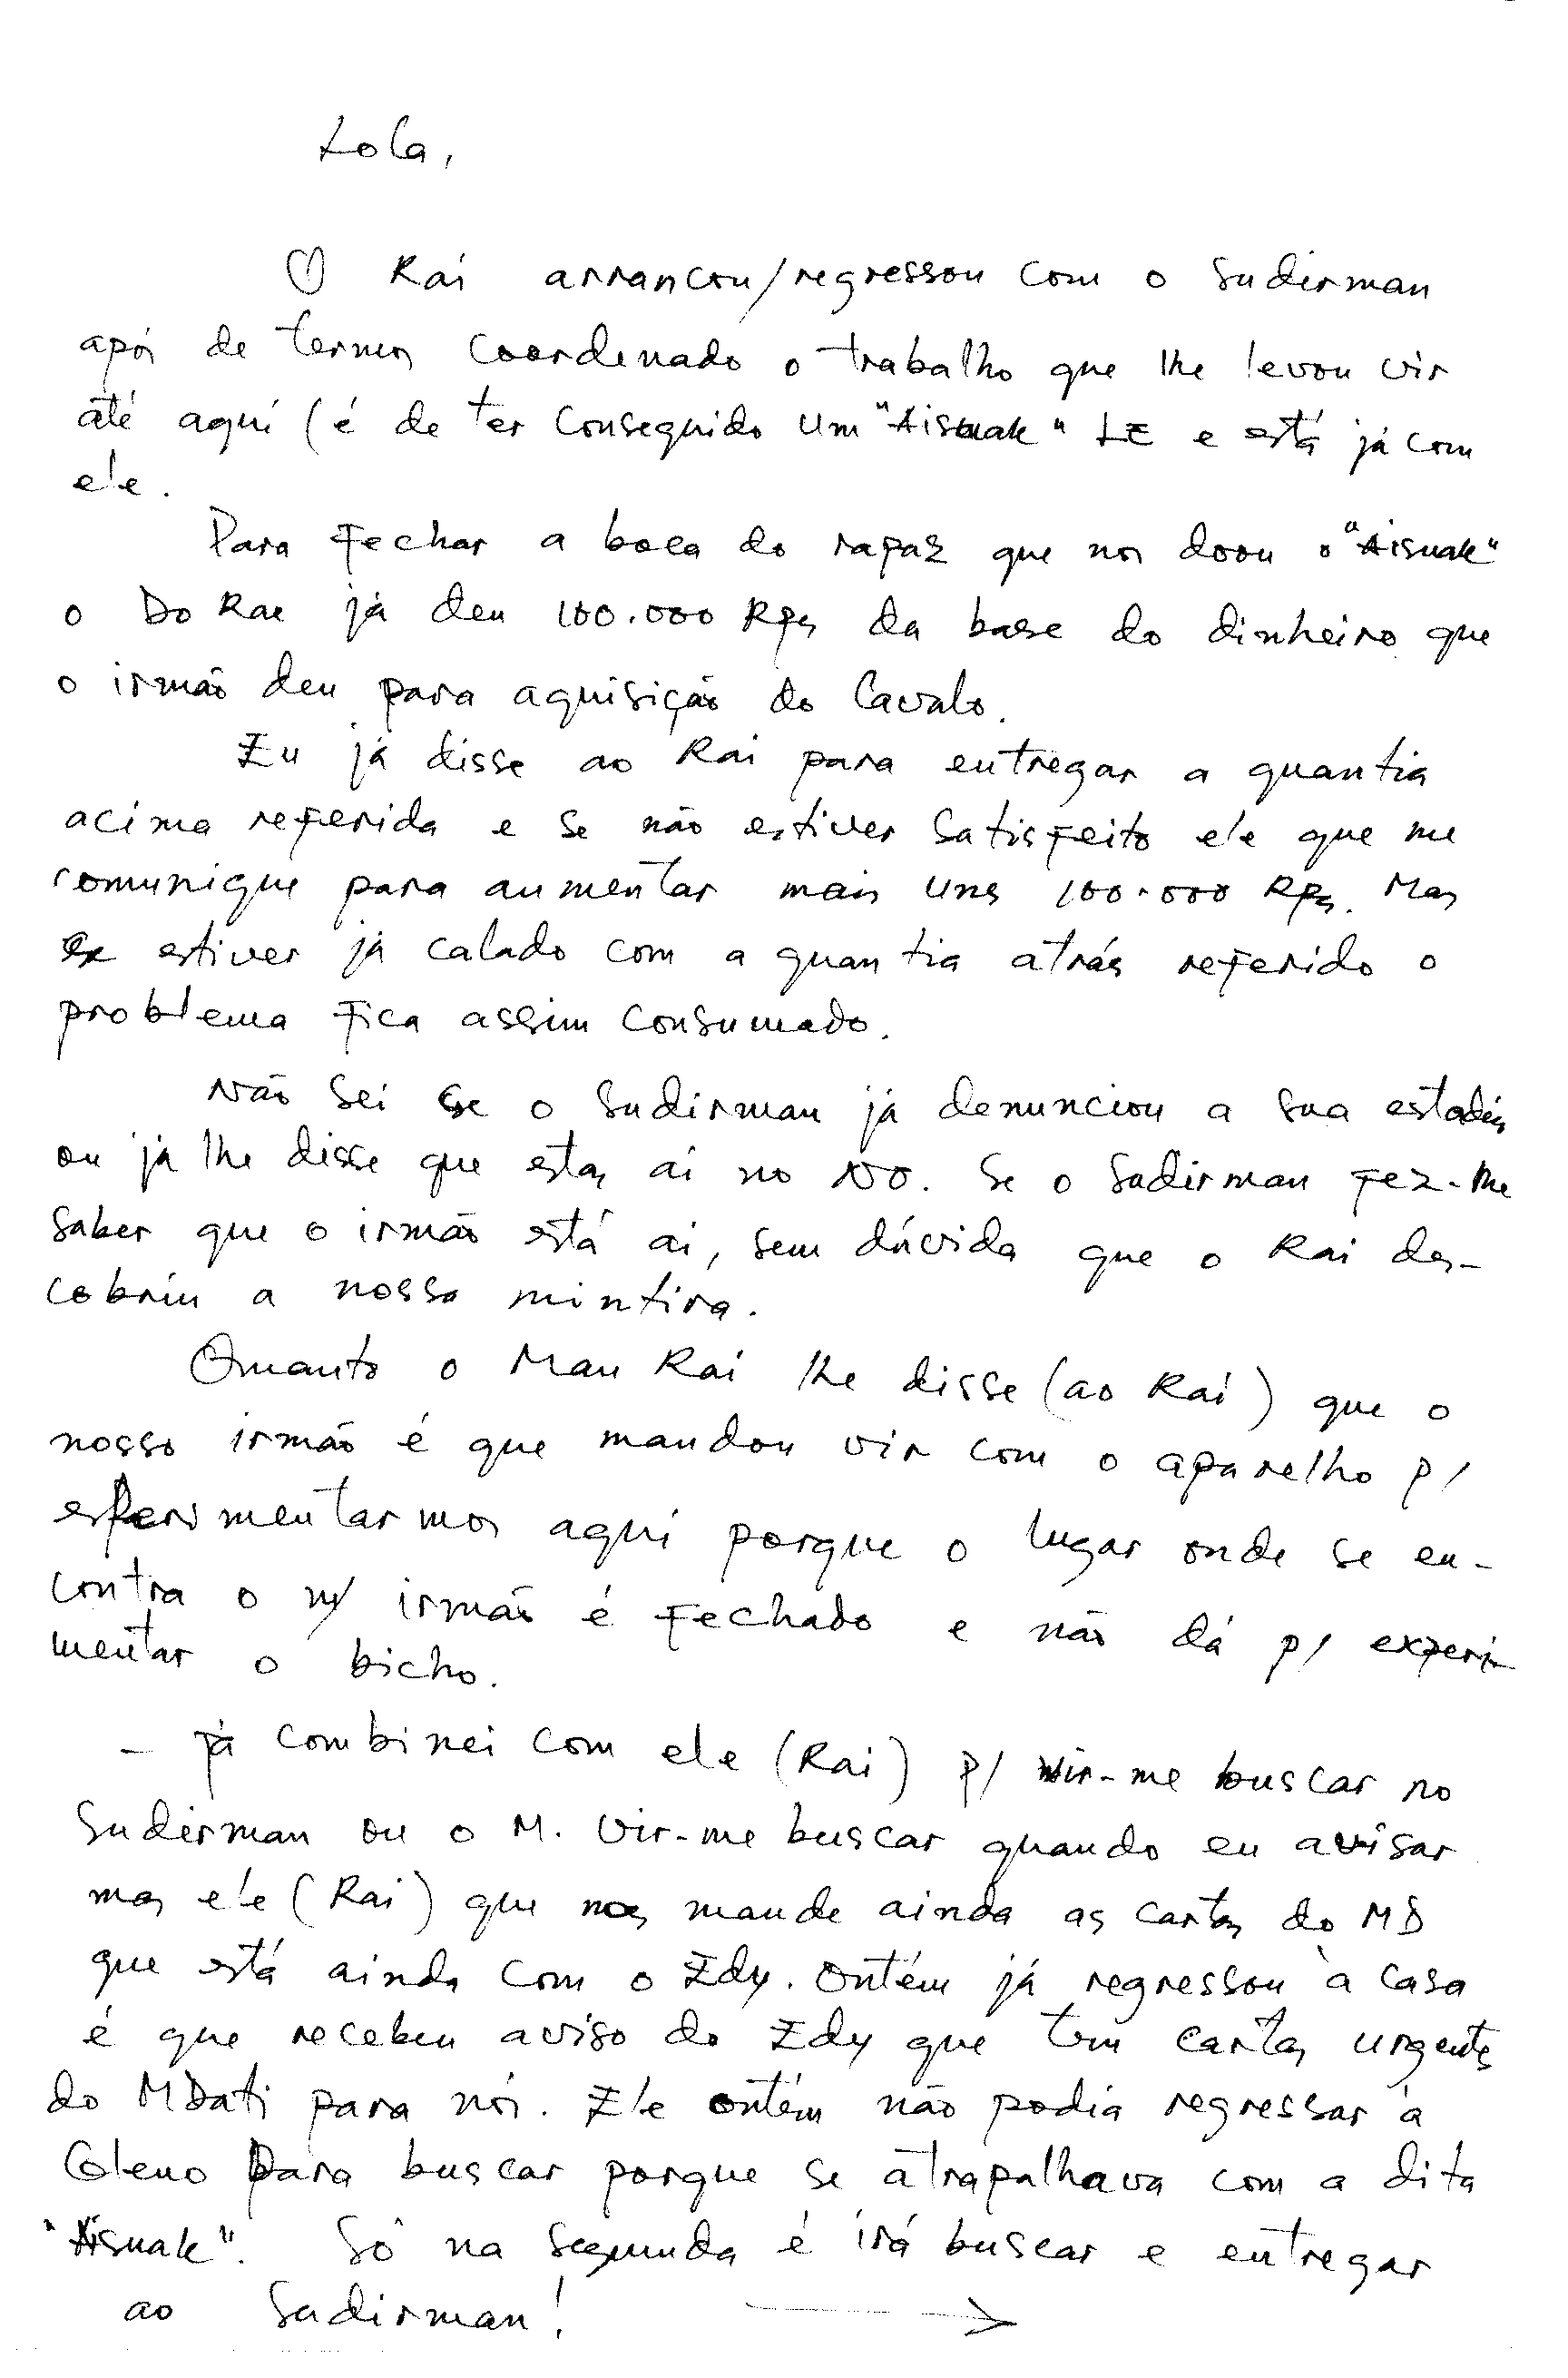 Lola,
O Rai arrancou/regressou com o Sudirman
após de termos coordenado o trabalho que lhe levou vir
até aqui (é de ter conseguido um "Aisuak" LE e está já com
ele.
Para fechar a boca do rapaz que nos doou o "Aisuak"
o Do Rae já deu 100.000 Rps da base do dinheiro que
o irmão deu para aquisição do Cavalo.
Eu já disse ao Rai para entregar a quantia
acima referida e se não estiver satisfeito ele que me
comunique para aumentar mais uns 100.000 Rps. Mas
se estiver já calado com a quantia atrás referido o
problema fica assim consumado.
Não sei se o Sudirman já denunciou a sua estadia
ou já lhe disse que estás aí no NO. Se o Sudirman fez-me
saber que o irmão está aí, sem dúvida que o Rai des-
cobriu a nossa mintira.
Quanto o Mau Rai lhe disse (ao Rai) que o
nosso irmão é que mandou vir com o aparelho p/
esperimentarmos aqui porque o lugar onde se en-
contra o n/ irmão é fechado e não dá p/ experi-
mentar o bicho.
- já combinei com ele (Rai) p/ vir-me buscar no
Sudirman ou o M. vir-me buscar quando eu avisar
mas ele (Rai) que nos mande ainda as cartas do MD
que está ainda com o Edy. Ontém já regressou à casa
é que recebeu aviso do Edy que tem cartas urgentes
do MDati para nós. Ele ontém não podia regressar à
Gleno para buscar porque se atrapalhava com a dita
"Aisuak". Só na segunda é irá buscar e entregar
ao Sudirman!